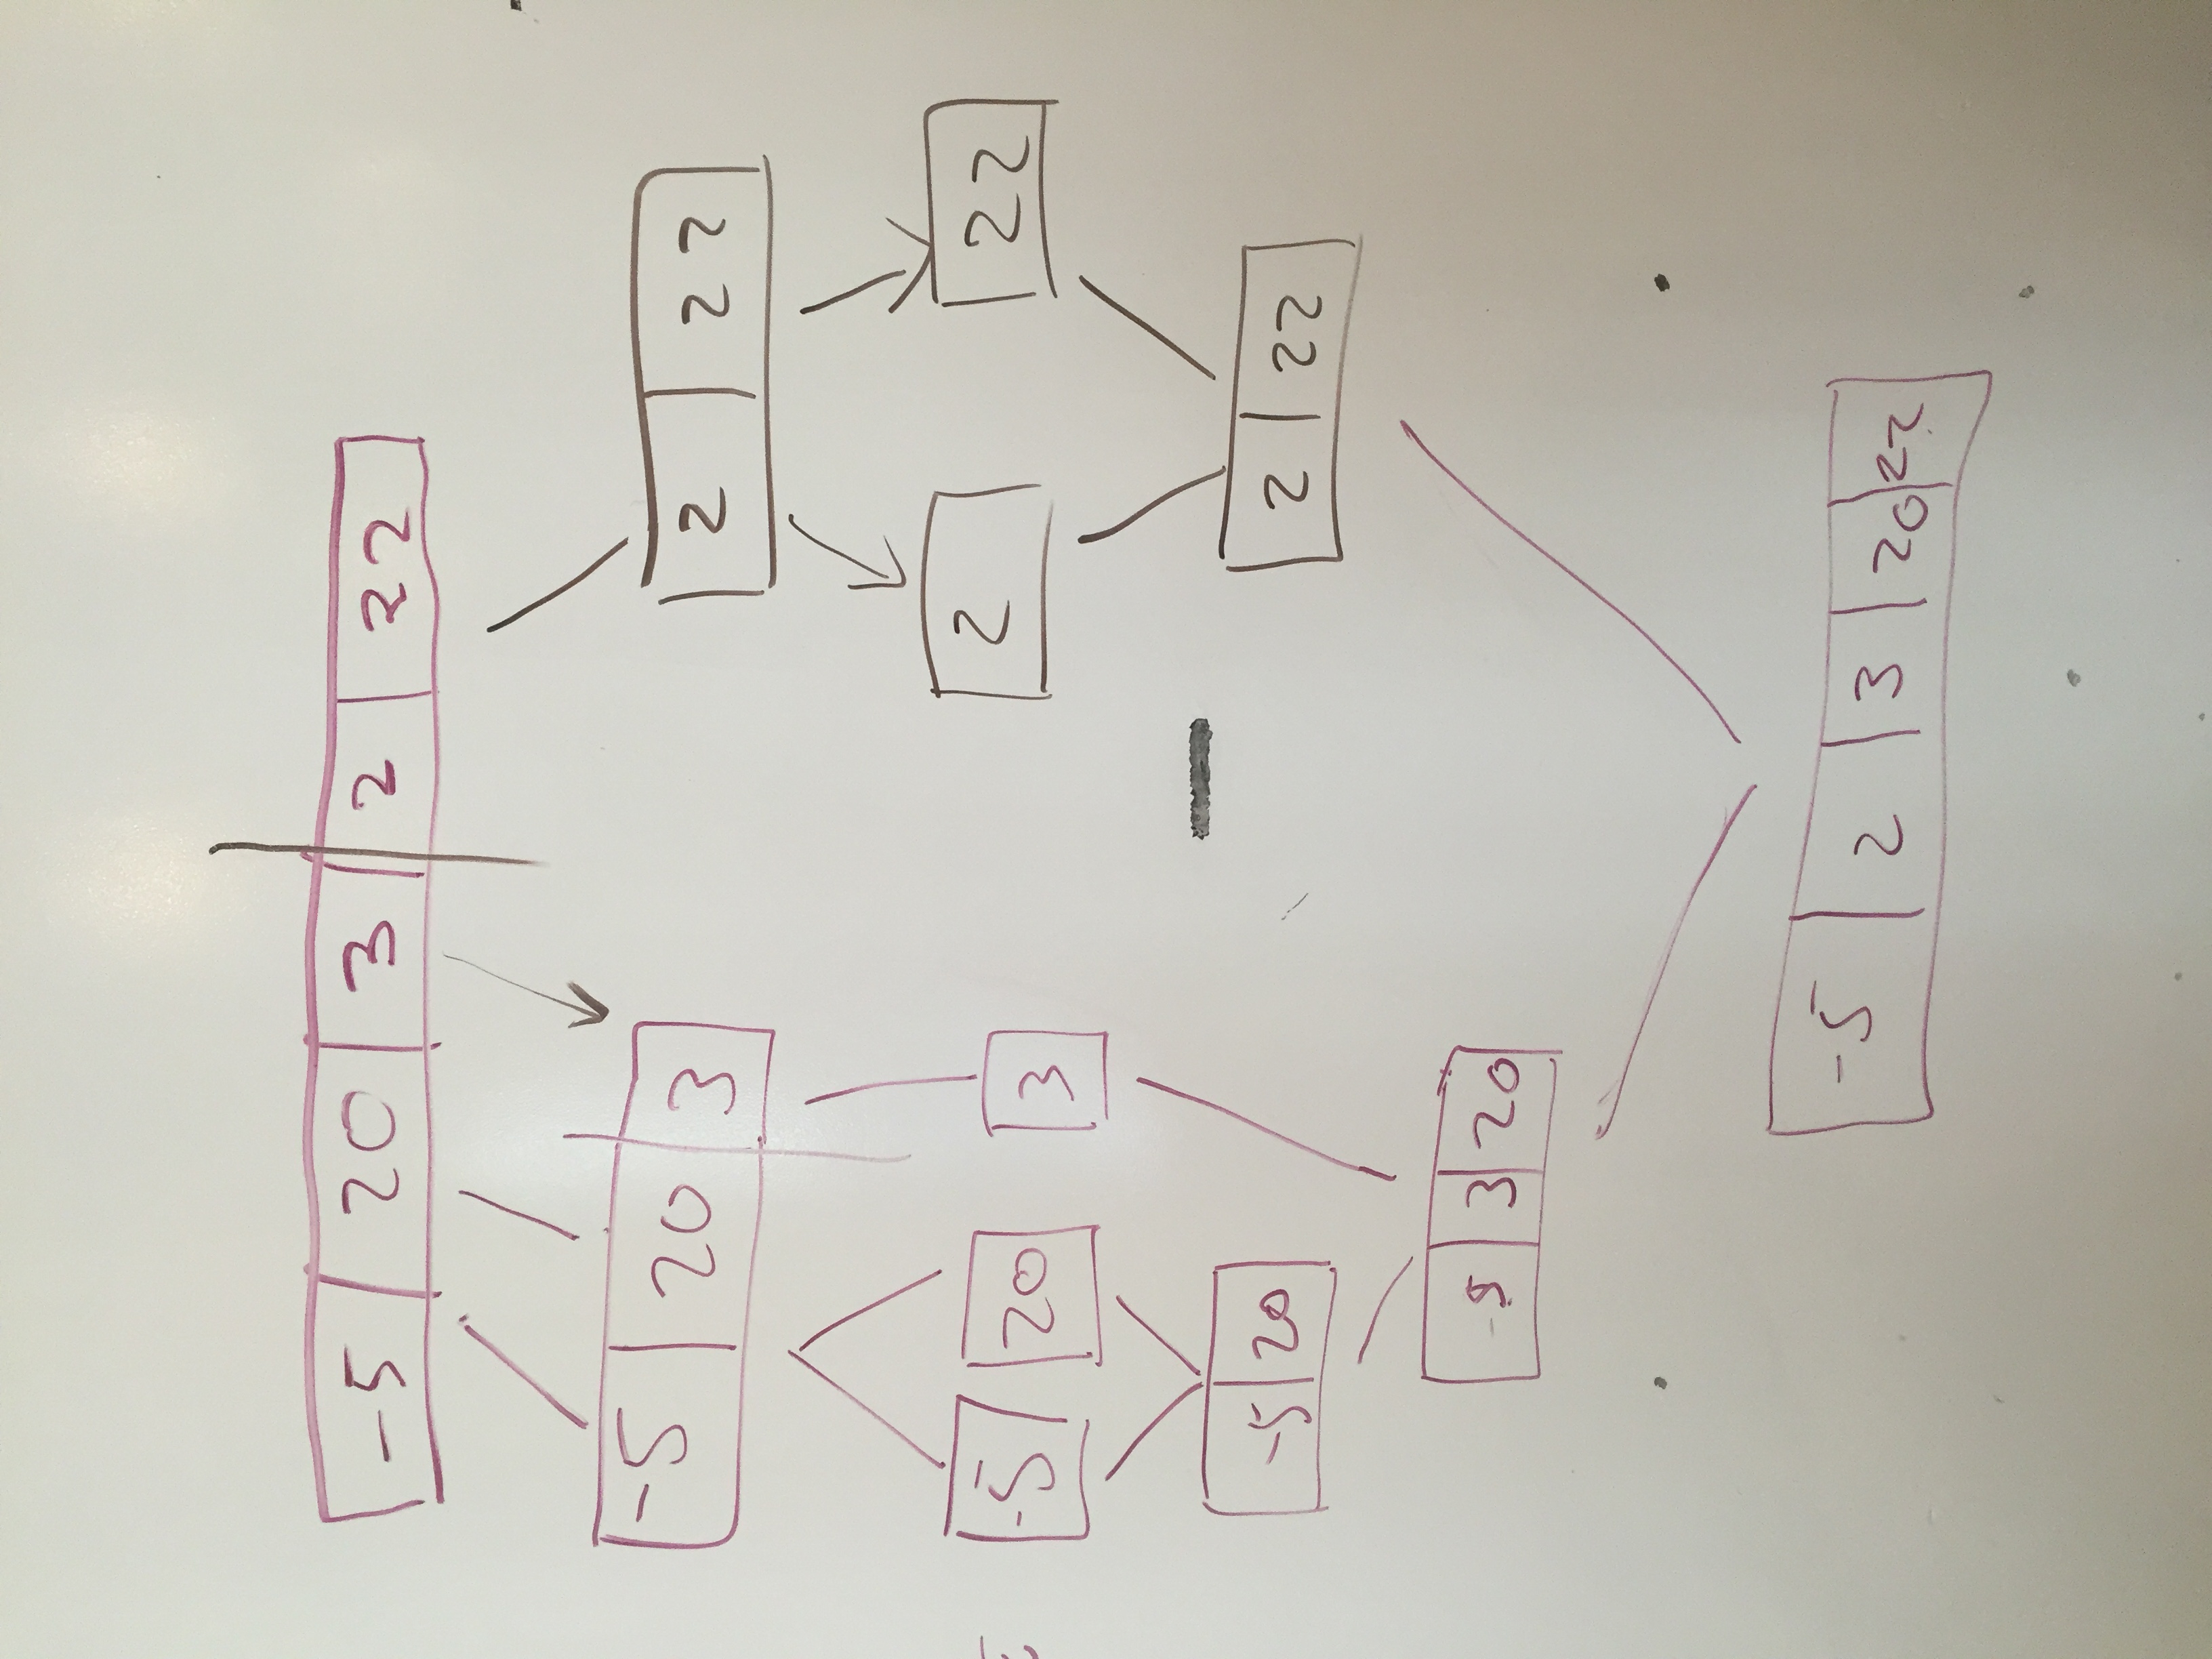 -5 20 3 2 22
-5 20 3
2 22
-5 20 3
2 22
-5 20
2 22
-5 3 20
-5 2 3 20 22